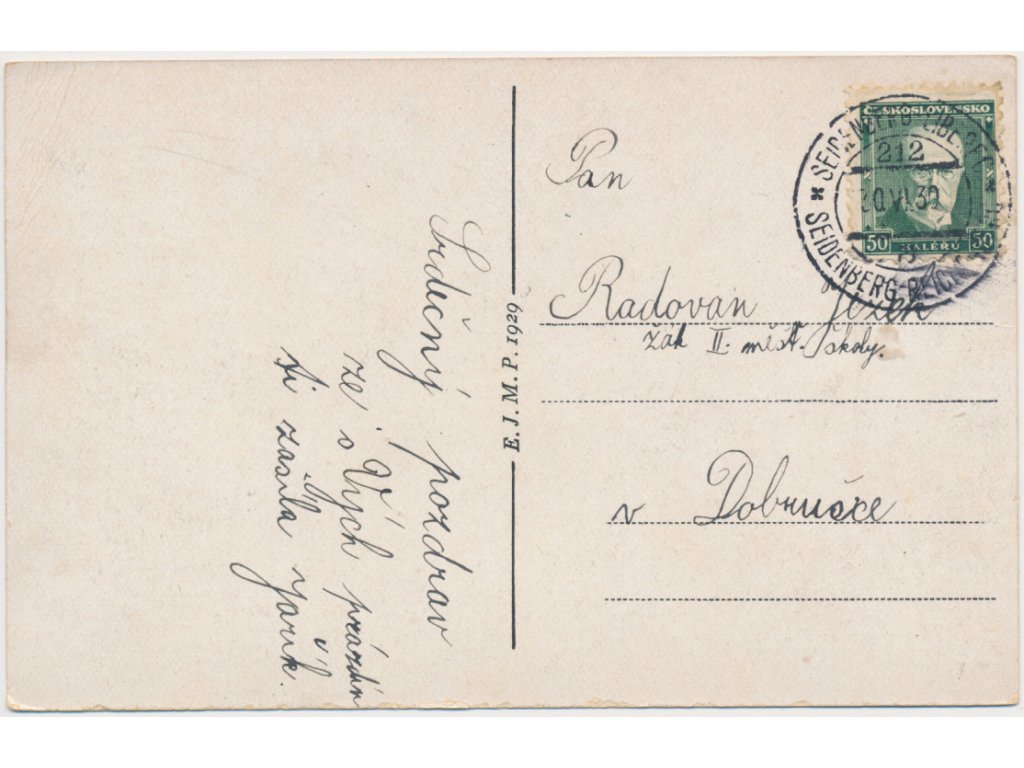 Srdečný pozdrav
ze svých prázdnin
ti zasílá Jarik.
E. J. M. P. 1929
Pan
Radovan Ježek
žák II. měst. školy.
v Dobrušce
ČESKOSLOVENSKO
50 HALÉŘŮ 50
SEIDENBERG
212
30.VI.30
SEIDENBERG-REICH